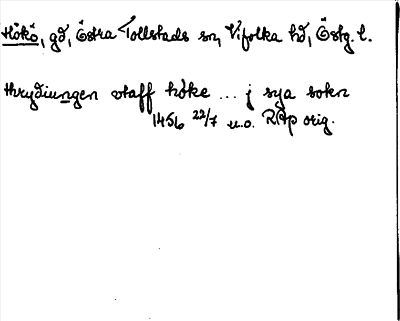 Hökö, gd, Östra Tollstads sn, Vifolka hd, Östg. l.
thrydiungen staff höke ... j sya sokn
1456 22/7 u.o. RAp orig.